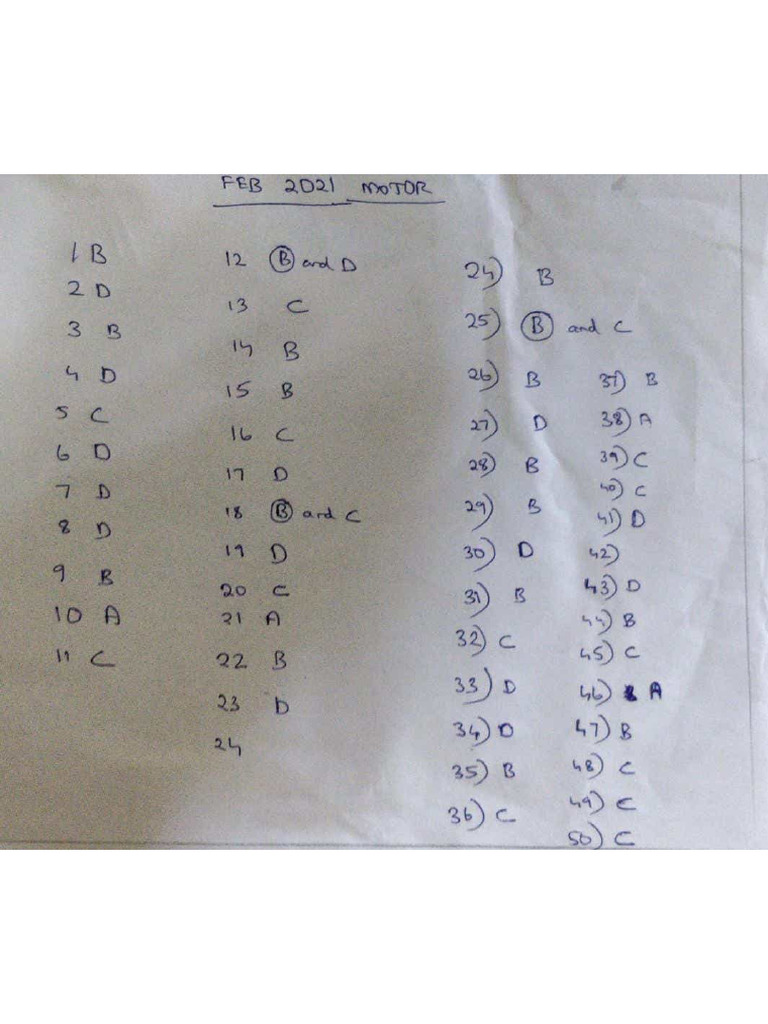 FEB 2021 MOTOR
1 B
2 D
3 B
4 D
5 C
6 D
7 D
8 D
9 B
10 A
11 C
12 B and D
13 C
14 B
15 B
16 C
17 D
18 B and C
19 D
20 C
21 A
22 B
23 D
24
24) B
25) B and C
26) B
27) D
28) B
29) B
30) D
31) B
32) C
33) D
34) D
35) B
36) C
37) B
38) A
39) C
40) C
41) D
42)
43) D
44) B
45) C
46) A
47) B
48) C
49) C
50) C